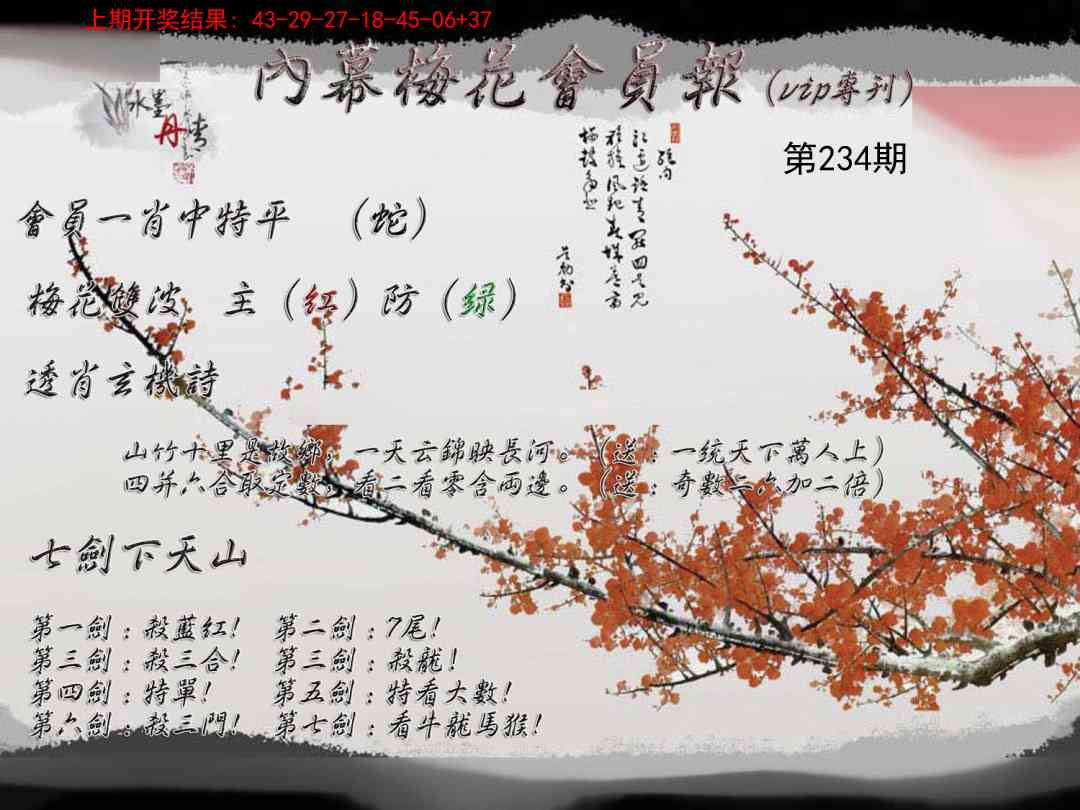 上期开奖结果：43-29-27-18-45-06+37
內幕梅花會員報（vip專刊）
水墨
丹青
第234期
會員一肖中特平 （蛇）
梅花雙波 主（红）防（绿）
透肖玄機詩
山竹十里是故鄉，一天云錦映長河。（送：一统天下萬人上）
四并六合取定數，看二看零含兩邊。（送：奇數二六加二倍）
七劍下天山
第一劍：殺藍红！ 第二劍：7尾！
第三劍：殺三合！ 第三劍：殺龍！
第四劍：特單！ 第五劍：特看大數！
第六劍：殺三門！ 第七劍：看牛龍馬猴！